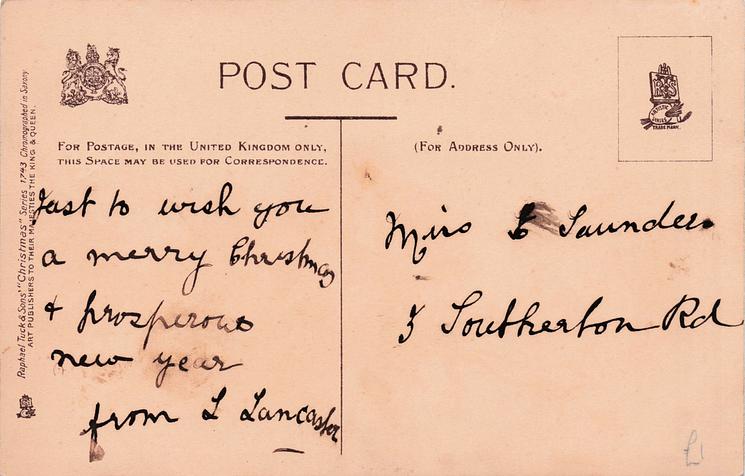 POST CARD.
FOR POSTAGE, IN THE UNITED KINGDOM ONLY,
THIS SPACE MAY BE USED FOR CORRESPONDENCE.
(FOR ADDRESS ONLY).
TRADE MARK.
Raphael Tuck & Sons' "Christmas" Series 1743 Chromographed in Saxony
ART PUBLISHERS TO THEIR MAJESTIES THE KING & QUEEN.
Just to wish you
a merry Christmas
& prosperous
new year
from L Lancaster
Miss E Saunders
3 Southerton Rd
£1